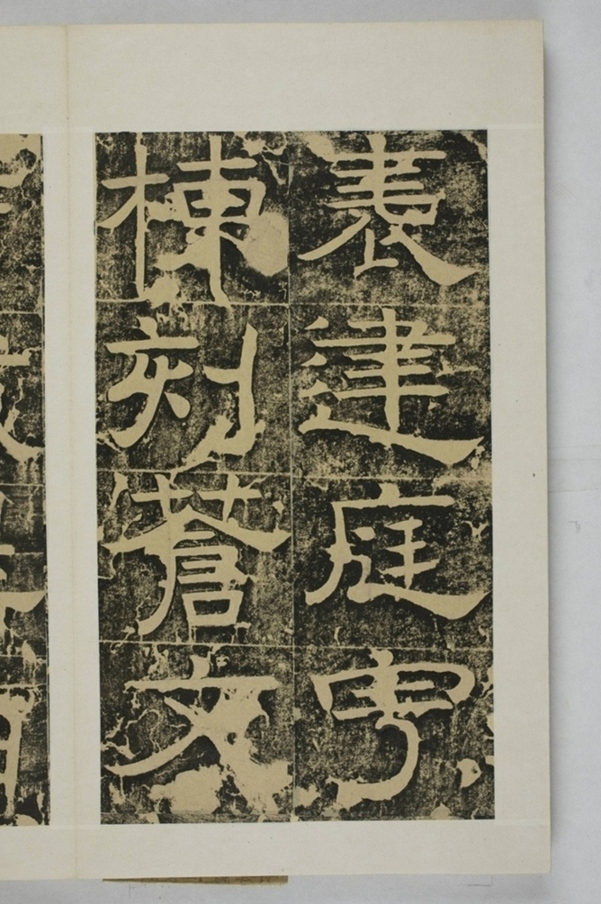 表建庭宇
棟刻蒼文